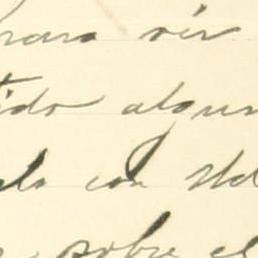 para vir
ido algun
lo con Ud
sobre el